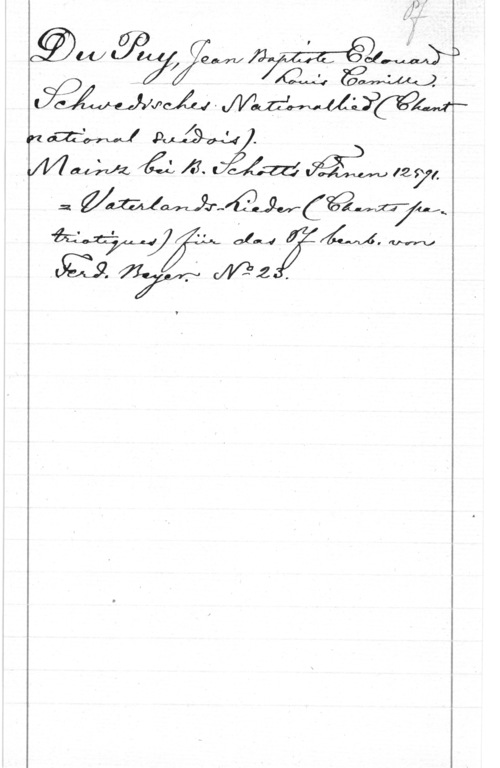 Pf
Du Puy, Jean Baptiste Edouard
Louis Camille.
Schwedisches Nationallied (Chant
national suédois).
Mainz bei B. Schott's Söhnen 12591.
= Vaterlands-Lieder (Chants pa-
triotiques) für das Pf bearb. von
Ferd. Beyer. No 23.